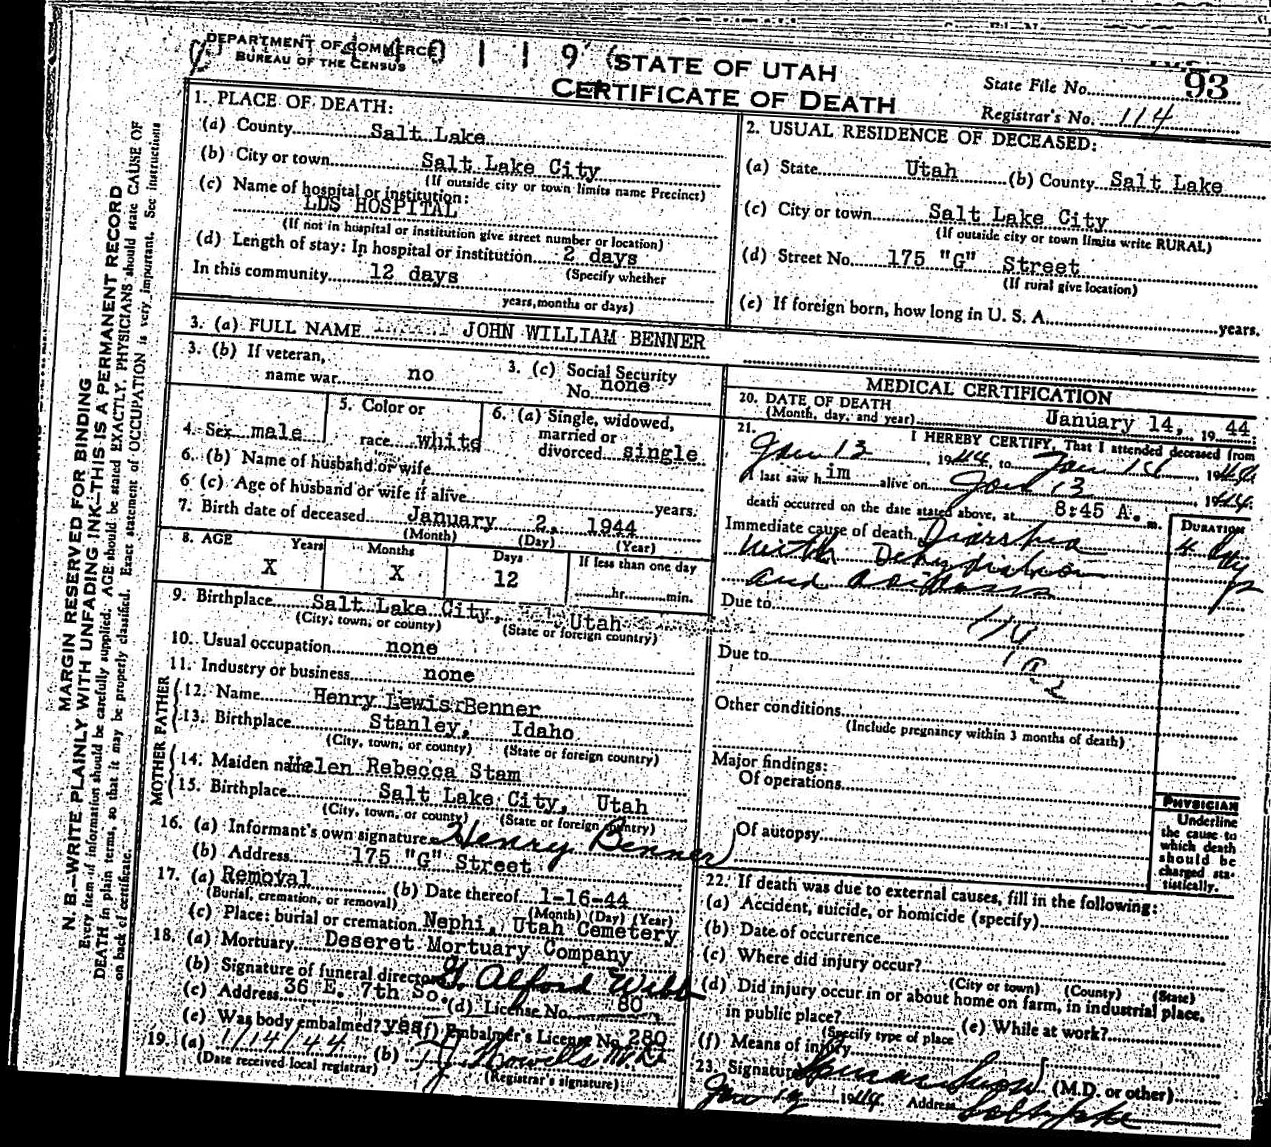 DEPARTMENT OF COMMERCE
BUREAU OF THE CENSUS
STATE OF UTAH
CERTIFICATE OF DEATH
State File No. 93
Registrar's No. 114
MARGIN RESERVED FOR BINDING
N. B.—WRITE PLAINLY WITH UNFADING INK—THIS IS A PERMANENT RECORD
Every item of information should be carefully supplied. AGE should be stated EXACTLY. PHYSICIANS should state CAUSE OF
DEATH in plain terms, so that it may be properly classified. Exact statement of OCCUPATION is very important. See instructions
on back of certificate.
1. PLACE OF DEATH:
(a) County Salt Lake
(b) City or town Salt Lake City
(If outside city or town limits name Precinct)
(c) Name of hospital or institution:
LDS HOSPITAL
(If not in hospital or institution give street number or location)
(d) Length of stay: In hospital or institution 2 days
(Specify whether
In this community 12 days
years, months or days)
2. USUAL RESIDENCE OF DECEASED:
(a) State Utah (b) County Salt Lake
(c) City or town Salt Lake City
(If outside city or town limits write RURAL)
(d) Street No. 175 "G" Street
(If rural give location)
(e) If foreign born, how long in U. S. A. years.
3. (a) FULL NAME JOHN WILLIAM BENNER
3. (b) If veteran,
name war no
3. (c) Social Security
No. none
4. Sex male
5. Color or
race white
6. (a) Single, widowed,
married or
divorced single
6. (b) Name of husband or wife
6 (c) Age of husband or wife if alive years.
7. Birth date of deceased January 2, 1944
(Month) (Day) (Year)
8. AGE Years Months Days If less than one day
X X 12 hr. min.
9. Birthplace Salt Lake City, Utah
(City, town, or county) (State or foreign country)
10. Usual occupation none
11. Industry or business none
FATHER
12. Name Henry Lewis Benner
13. Birthplace Stanley, Idaho
(City, town, or county) (State or foreign country)
MOTHER
14. Maiden name Helen Rebecca Stam
15. Birthplace Salt Lake City, Utah
(City, town, or county) (State or foreign country)
16. (a) Informant's own signature Henry Benner
(b) Address 175 "G" Street
17. (a) Removal (b) Date thereof 1-16-44
(Burial, cremation, or removal) (Month) (Day) (Year)
(c) Place: burial or cremation Nephi, Utah Cemetery
18. (a) Mortuary Deseret Mortuary Company
(b) Signature of funeral director G. Alford Webb
(c) Address 36 E. 7th So. (d) License No. 80
(e) Was body embalmed? yes (f) Embalmer's License No. 280
19. (a) 1/14/44 (b) Howells M.D.
(Date received local registrar) (Registrar's signature)
MEDICAL CERTIFICATION
20. DATE OF DEATH
(Month, day, and year) January 14, 19 44
21. I HEREBY CERTIFY, That I attended deceased from
Jan 13, 1944, to Jan 14, 1944
I last saw h im alive on Jan 13, 1944
death occurred on the date stated above, at 8:45 A. m.
Immediate cause of death Diarrhea
with Dehydration
and acidosis
DURATION
4 days
Due to
Due to
Other conditions
(Include pregnancy within 3 months of death)
Major findings:
Of operations
Of autopsy
PHYSICIAN
Underline
the cause to
which death
should be
charged sta-
tistically.
22. If death was due to external causes, fill in the following:
(a) Accident, suicide, or homicide (specify)
(b) Date of occurrence
(c) Where did injury occur?
(City or town) (County) (State)
(d) Did injury occur in or about home on farm, in industrial place,
in public place? (e) While at work?
(Specify type of place
(f) Means of injury
23. Signature (M.D. or other)
Jan 1944 Address Salt Lake